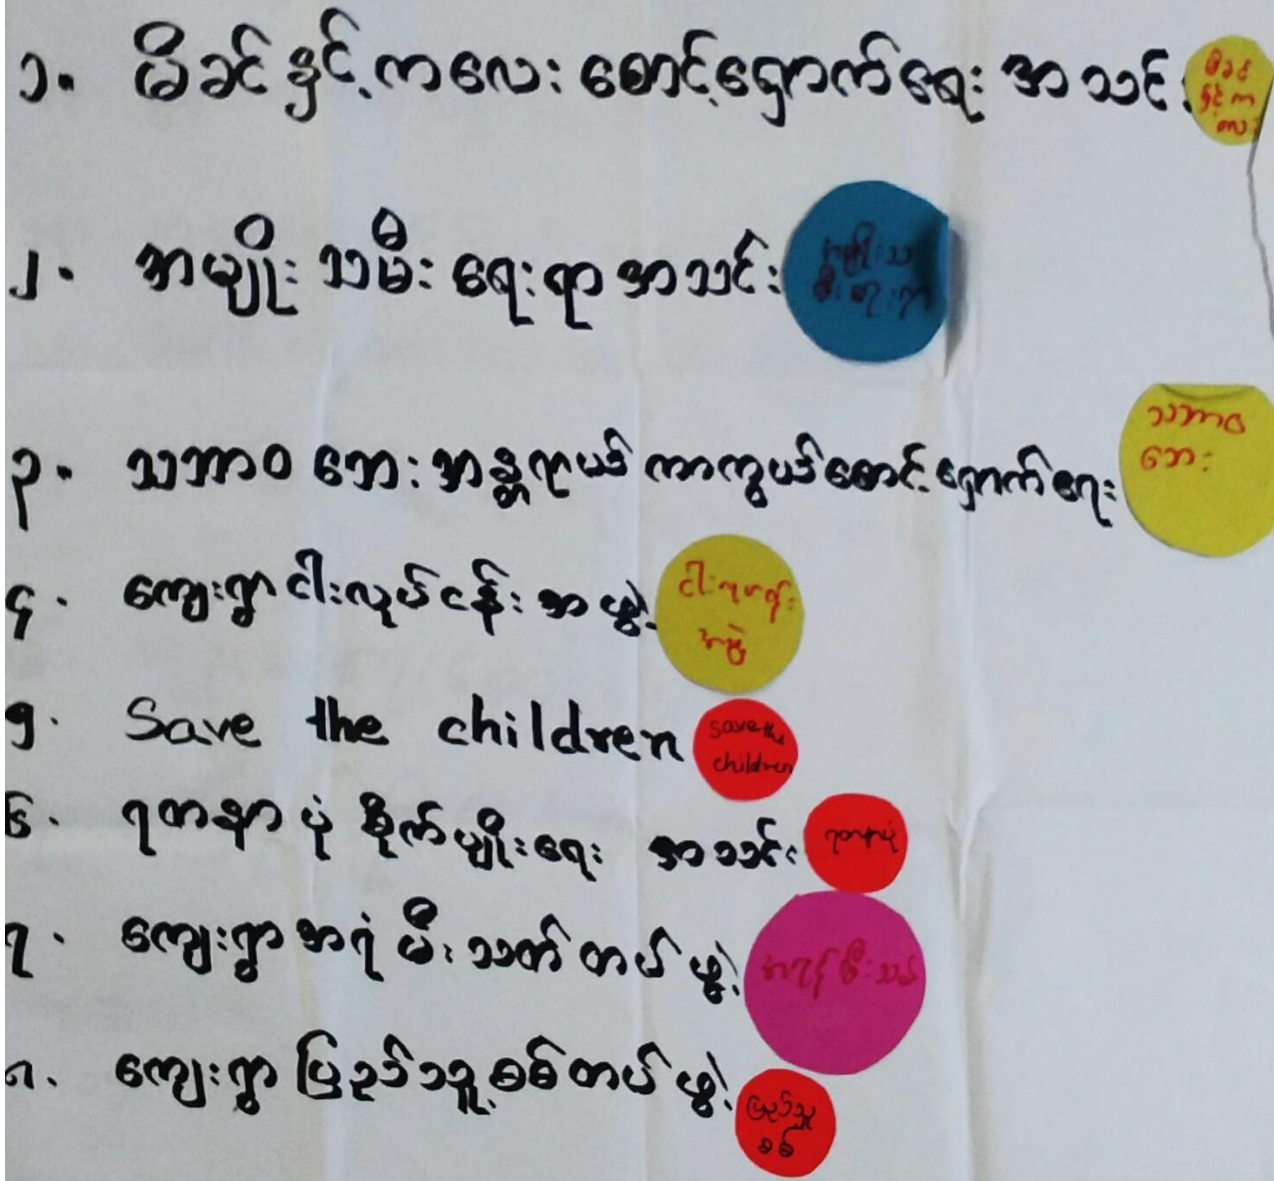 ၁. မိခင်နှင့်ကလေး စောင့်ရှောက်ရေး အသင်း
မိခင်
နှင့်က
လေး
၂. အမျိုးသမီးရေးရာအသင်း
အမျိုးသ
မီးရေးရာ
၃. သဘာဝဘေးအန္တရာယ်ကာကွယ်စောင့်ရှောက်ရေး
သဘာဝ
ဘေး
၄. ကျေးရွာငါးလုပ်ငန်းအဖွဲ့
ငါးလုပ်ငန်း
အဖွဲ့
၅. Save the children
save the
children
၆. ရတနာပုံစိုက်ပျိုးရေး အသင်း
ရတနာပုံ
၇. ကျေးရွာအရံမီးသတ်တပ်ဖွဲ့
အရန်မီးသတ်
၈. ကျေးရွာပြည်သူ့စစ်တပ်ဖွဲ့
ပြည်သူ့
စစ်